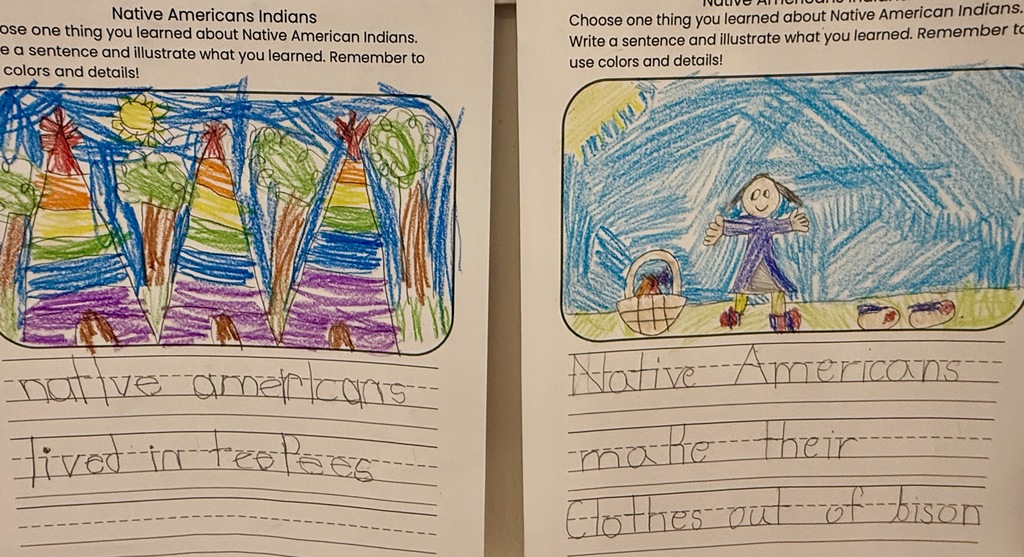 Native Americans Indians
ose one thing you learned about Native American Indians.
e a sentence and illustrate what you learned. Remember to
colors and details!
native americans
lived in teepees
Native American Indians
Choose one thing you learned about Native American Indians.
Write a sentence and illustrate what you learned. Remember to
use colors and details!
Native Americans
make their
Clothes out of bison